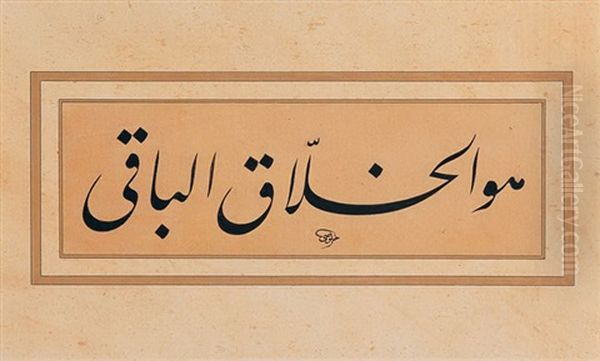 هو الخلّاق الباقی
خلوصی
NiceArtGallery.com